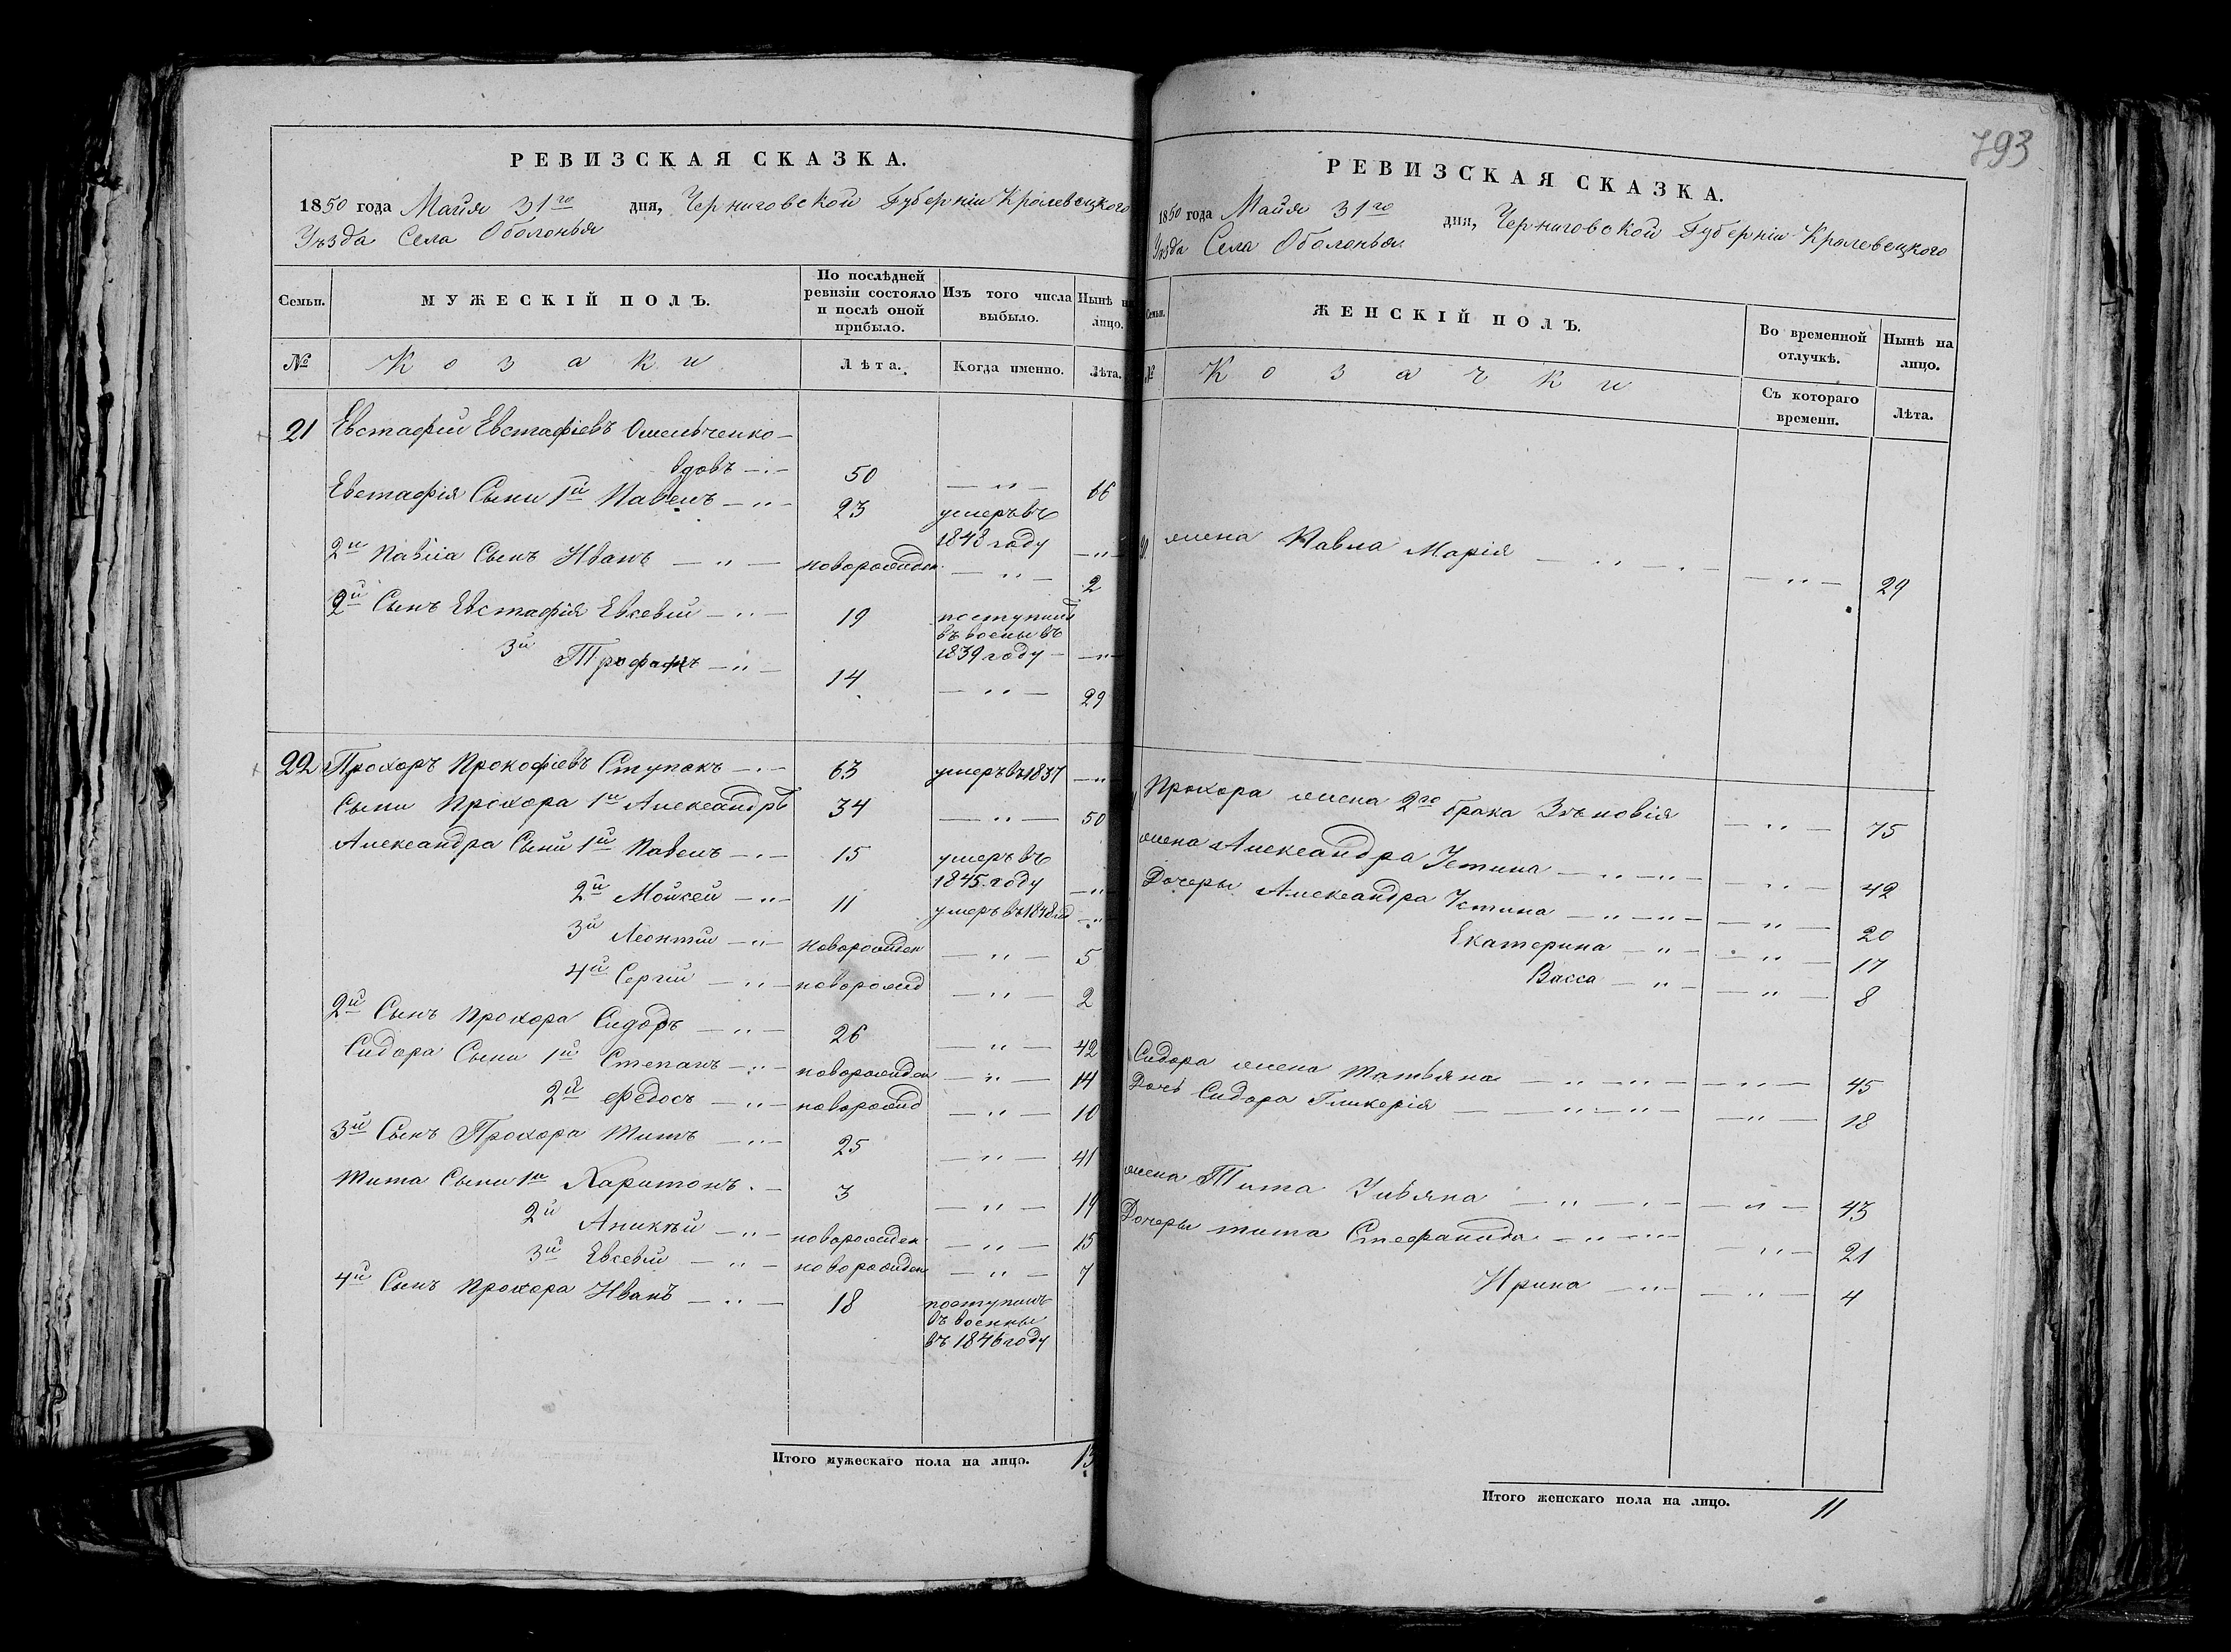 РЕВИЗСКАЯ СКАЗКА.
1850 года Майя 31го дня, Черниговской Губерніи Кролевецкого
Уѣзда Села Оболонья
Семьи.
МУЖЕСКІЙ ПОЛЪ.
По послѣдней ревизіи состояло и послѣ оной прибыло.
Изъ того числа выбыло.
Нынѣ на лицо.
№
Козаки
Лѣта.
Когда именно.
Лѣта.
21 Евстафий Евстафіевъ Омельченко
вдовъ 50 — " — 66
Евстафія Сыни 1й Павелъ — " — 23 умеръ въ
1848 году — " —
2й Павла Сынъ Иванъ — " — новорожден — " — 2
2й Сынъ Евстафія Евсевій — " — 19 поступил
въ воены въ
1839 году — " —
3й Трофимъ — " — 14 — " — 29
22 Прохоръ Прокофіевъ Ступакъ — 63 умеръ въ 1837 — " —
Сыни Прохора 1й Александръ 34 — " — 50
Александра Сыни 1й Павелъ — 15 умеръ въ
1845 году — " —
2й Мойсей — " — 11 умеръ въ 1848 год — " —
3й Леонтій — " — новорожден — " — 5
4й Сергій — " — новорожд — " — 2
2й Сынъ Прохора Сидоръ — " — 26 — " — 42
Сидора Сыни 1й Степанъ — " — новорожден — " — 14
2й Федосъ — " — новорожд — " — 10
3й Сынъ Прохора Титъ — " — 25 — " — 41
Тита Сыни 1й Харитонъ — 3 — " — 19
2й Аникѣй — " — новорожден — " — 15
3й Евсевій — " — новорожден — " — 7
4й Сынъ Прохора Иванъ — " — 18 поступилъ
въ военны
въ 1846 году
Итого мужескаго пола на лицо. 13
793
РЕВИЗСКАЯ СКАЗКА.
1850 года Майя 31го дня, Черниговской Губерніи Кролевецкого
Уѣзда Села Оболонья
Семьи.
ЖЕНСКІЙ ПОЛЪ.
Во временной отлучкѣ.
Нынѣ на лицо.
№
Козачки
Съ котораго времени.
Лѣта.
жена Павла Марія — " — — " — 29
Прохора жена 2го брака Зѣновія — " — 75
жена Александра Устина — " — " — — " — 42
Дочеры Александра Устина — " — " — — " — 20
Екатерина — " — — " — 17
Васса — " — — " — 8
Сидора жена Татьяна — " — " — — " — 45
Дочь Сидора Гликерія — " — " — — " — 18
жена Тита Ульяна — " — — " — 43
Дочеры тита Стефанида — " — " — — " — 21
Ирина — " — — " — 4
Итого женскаго пола на лицо. 11